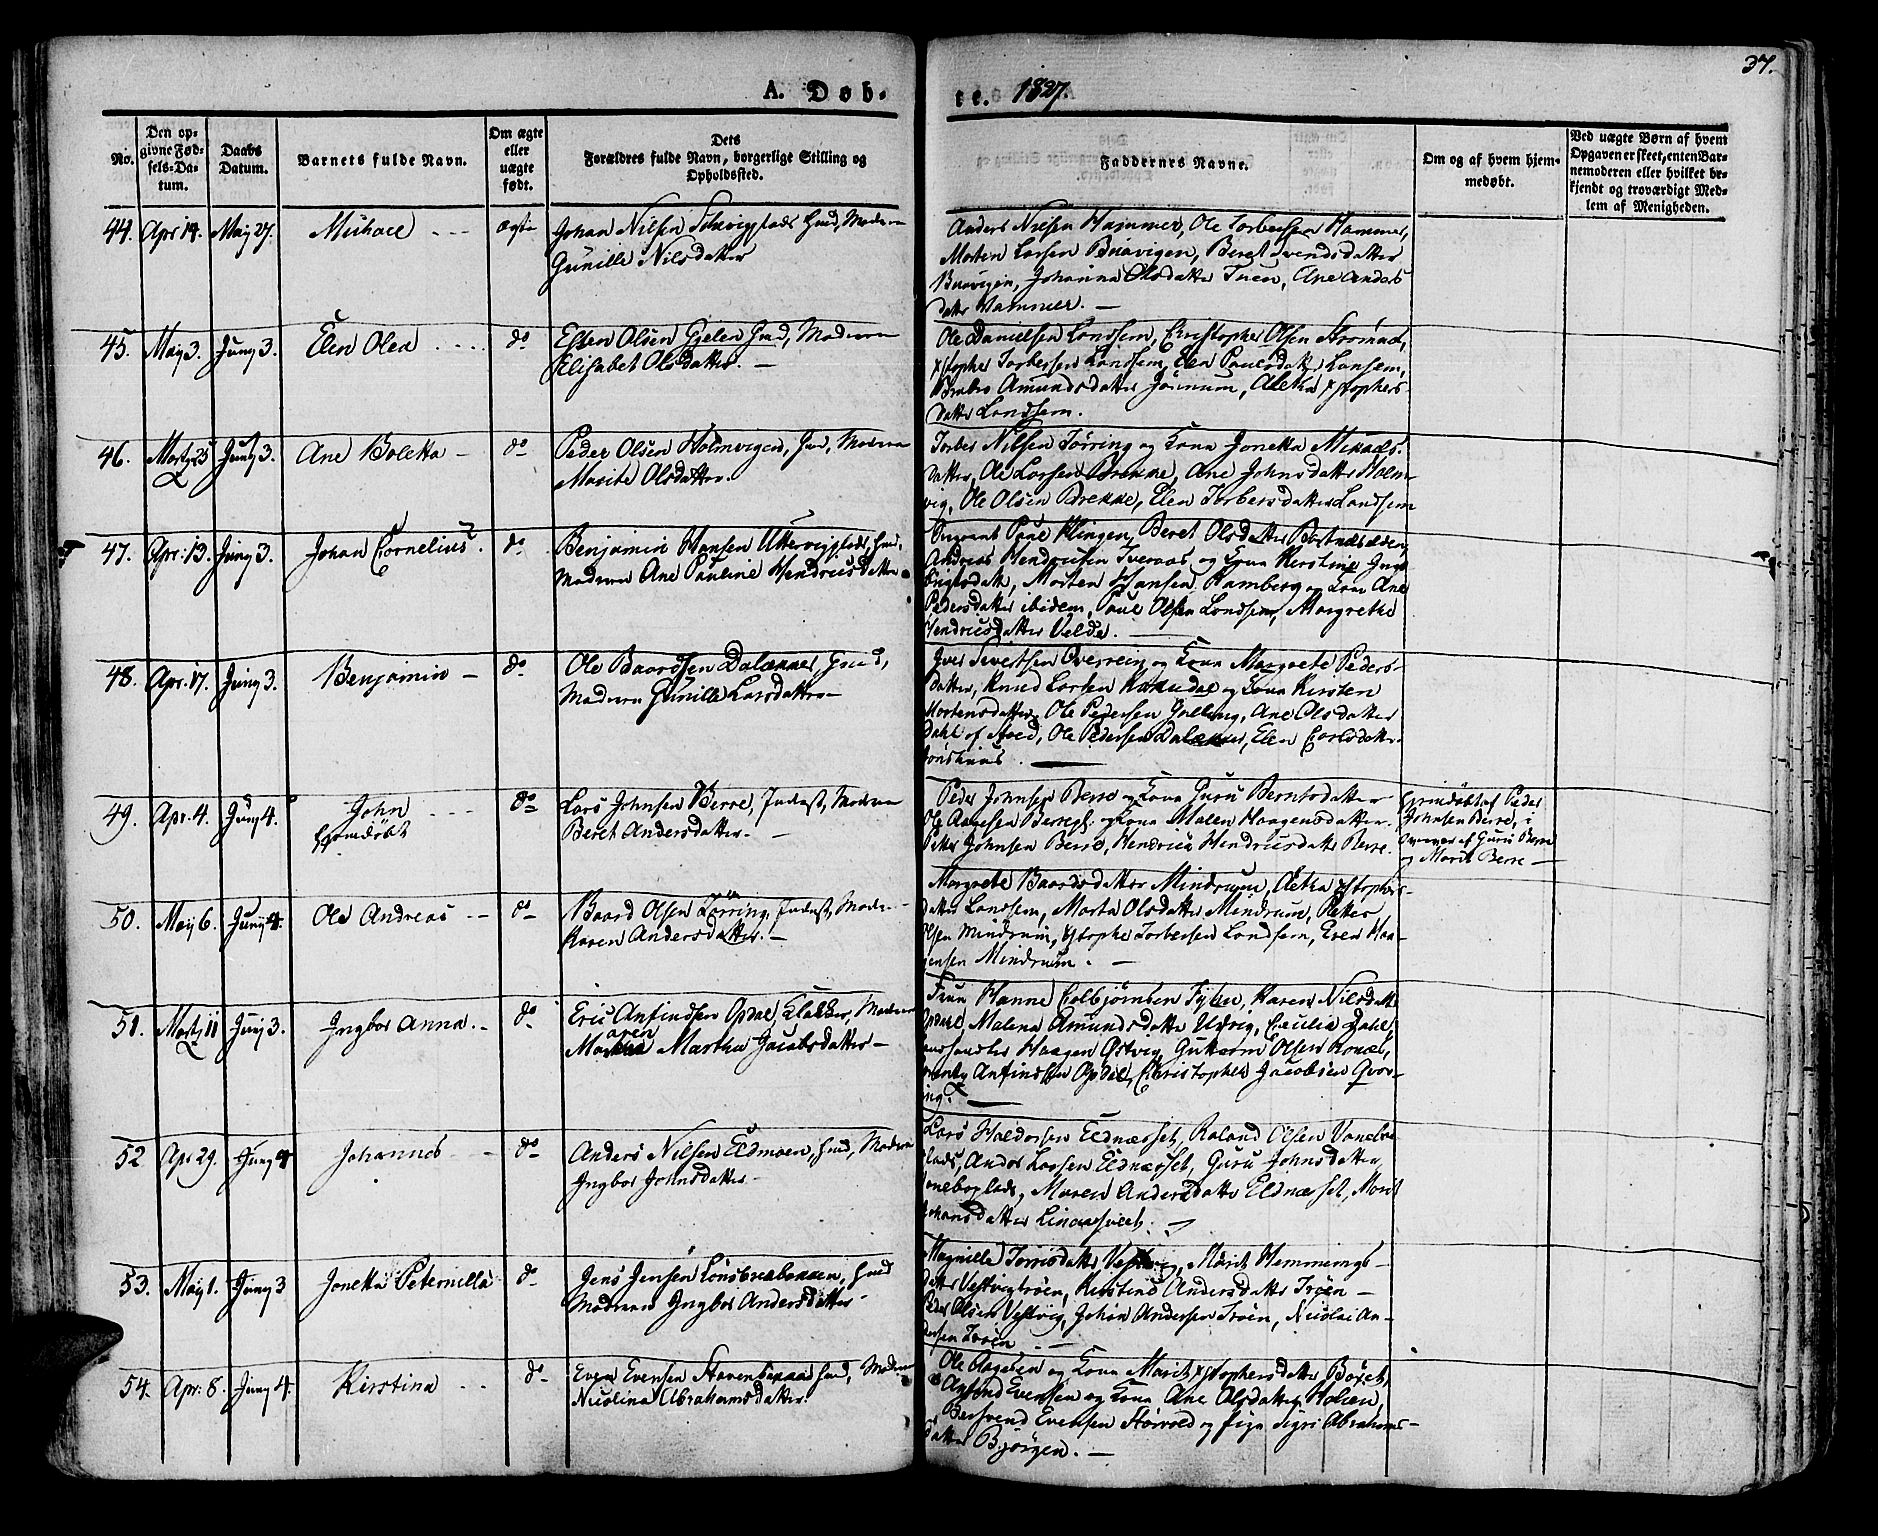 37.
A. Døb-
te. 1827.
No.
Den op-
givne Fød-
sels-Da-
tum.
Daabs
Datum.
Barnets fulde Navn.
Om ægte
eller
uægte
født.
Dets
Forældres fulde Navn, borgerlige Stilling og
Opholdssted.
Faddernes Navne.
Om og af hvem hjem-
medøbt.
Ved uægte Børn af hvem
Opgaven er skeet, enten Bar-
nemoderen eller hvilket be-
kjendt og troværdigt Med-
lem af Menigheden.
44. Apr 14. May 27. Michael ægte
Johan Nilsen Huud, Moderen
Gunille Nilsdatter
Anders Nilsen Hammer, Ole Torbersen Hammer,
Morten Larsen Buavigen, Beret Svendsdatter
Buavigen, Johanna Olsdatter Tuen, Ane Anders
datter Hammer. —
45. May 3. Juny 3. Elen Olea do
Esten Olsen Gjelen Huud, Moderen
Elisabet Olsdatter. —
Ole Danielsen Londsem, Christopher Olsen
Xstopher Torbersen Londsem, Elen Paulsdatter Lonsem,
Amundsdatter Aletha Xstophers
datter Londsem.
46. Marty 25 Juny 3. Ane Boletta — do
Peder Olsen Holmvigen, Huud, Moderen
Marite Olsdatter.
Torber Nilsen Tørring og Kona Jonetta
datter, Ole Larsen Brekke, Ane Johnsdatter Holm-
vig, Ole Olsen Brekke, Elen Torbersdatter Londsem
47. Apr: 13. Juny 3. Johan Cornelius. do
Benjamin Hansen Huud,
Moderen Ane Pauline Hendriksdatter
Paul Klingen, Beret Olsdatter
Andreas Hendriksen og Kona Kerstine Inge-
brigtsdatt, Morten Hansen Ramberg og Kona Ane
Pedersdatter ibidem, Paul Olsen Londsem, Margrethe
Hendriksdatter Velde.
48. Apr. 17. Juny 3. Benjamin — do
Ole Baardsen Dalækker, Huud,
Moderen Gunille Larsdatter —
Iver Sivertsen Overrein og Kona Margrete Peders-
datter, Knud Larsen og Kona Kirsten
Mortensdatter, Ole Pedersen Ane Olsdatter
Dahl af Ole Pedersen Dalækker, Elen Carlsdatter
49. Apr. 4. Juny 4. John do
hjemdøbt
Lars Johnsen Berre, Inderst, Moderen
Beret Andersdatter. —
Peder Johnsen Berre og Kona Guru Berntsdatter
Ole Aagesen og Kona Malen Haagensdatter
Petter Johnsen Berre, Hendrica Hendriksdatter Berre.
Hjemdøbt af Peder
Johnsen Berre, i
Overvær af Guru Berre
og Marit Berre —
50. May 6. Juny 4. Ole Andreas do
Baard Olsen Tørring, Inderst, Moder
Karen Andersdatter. —
Margrete Baardsdatter Mindrum, Aletha Xstophers-
datter Lonssem, Marta Olsdatter Mindrum, Petter
Olsen Mindrum, Xstopher Torbersen Londsem, Even Haa-
gensen Mindrum. —
51. Marty 11 Juny 3. Ingbor Anna. do
Eric Anfindsen Opdal Klokker, Moderen
Maren Martha Jacobsdatter —
Fruu Hanne Colbjørnsen Karen Nilsdatter
Opdal, Malena Amundsdatter Utvig, Cecilia Dahl,
Haagen Østvig, Guttorm Olsen
Anfindsen Opdal, Christopher Jacobsen Qvar-
ving.
52 Apr 29. Juny 4 Johannes do
Anders Nilsen Eldmoen, Huud, Moderen
Ingbor Johnsdatter —
Lars Haldorsen Eldnæsset, Roland Olsen
Andor Larsen Eldnæsset, Guru Johnsdatter
Maren Andersdatter Eldnæsset, Marit
Johansdatter
53. May 1. Juny 3 Jonetta Peternilla do
Jens Jensen Huud
Moderen Ingbor Andersdatter
Magnille Torrisdatter Vestvig, Marit Hemmings-
datter Vestvigtrøen, Kirstine Andersdatter Trøen —
Peder Olsen Vestvig, Johan Andersen Trøen, Nicolai An-
dersen Trøen —
54. Apr. 8. Juny 4. Kirstina do
Even Evensen Huud, Moderen
Nicolina Abrahamsdatter
Ole Aagesen og Kona Marit Xstophersdatter
Anfind Evensen og Kona Ane Olsdatter Holien,
Bersvend Evensen og Pige Sigri Abrahams-
datter Bjørgen. —